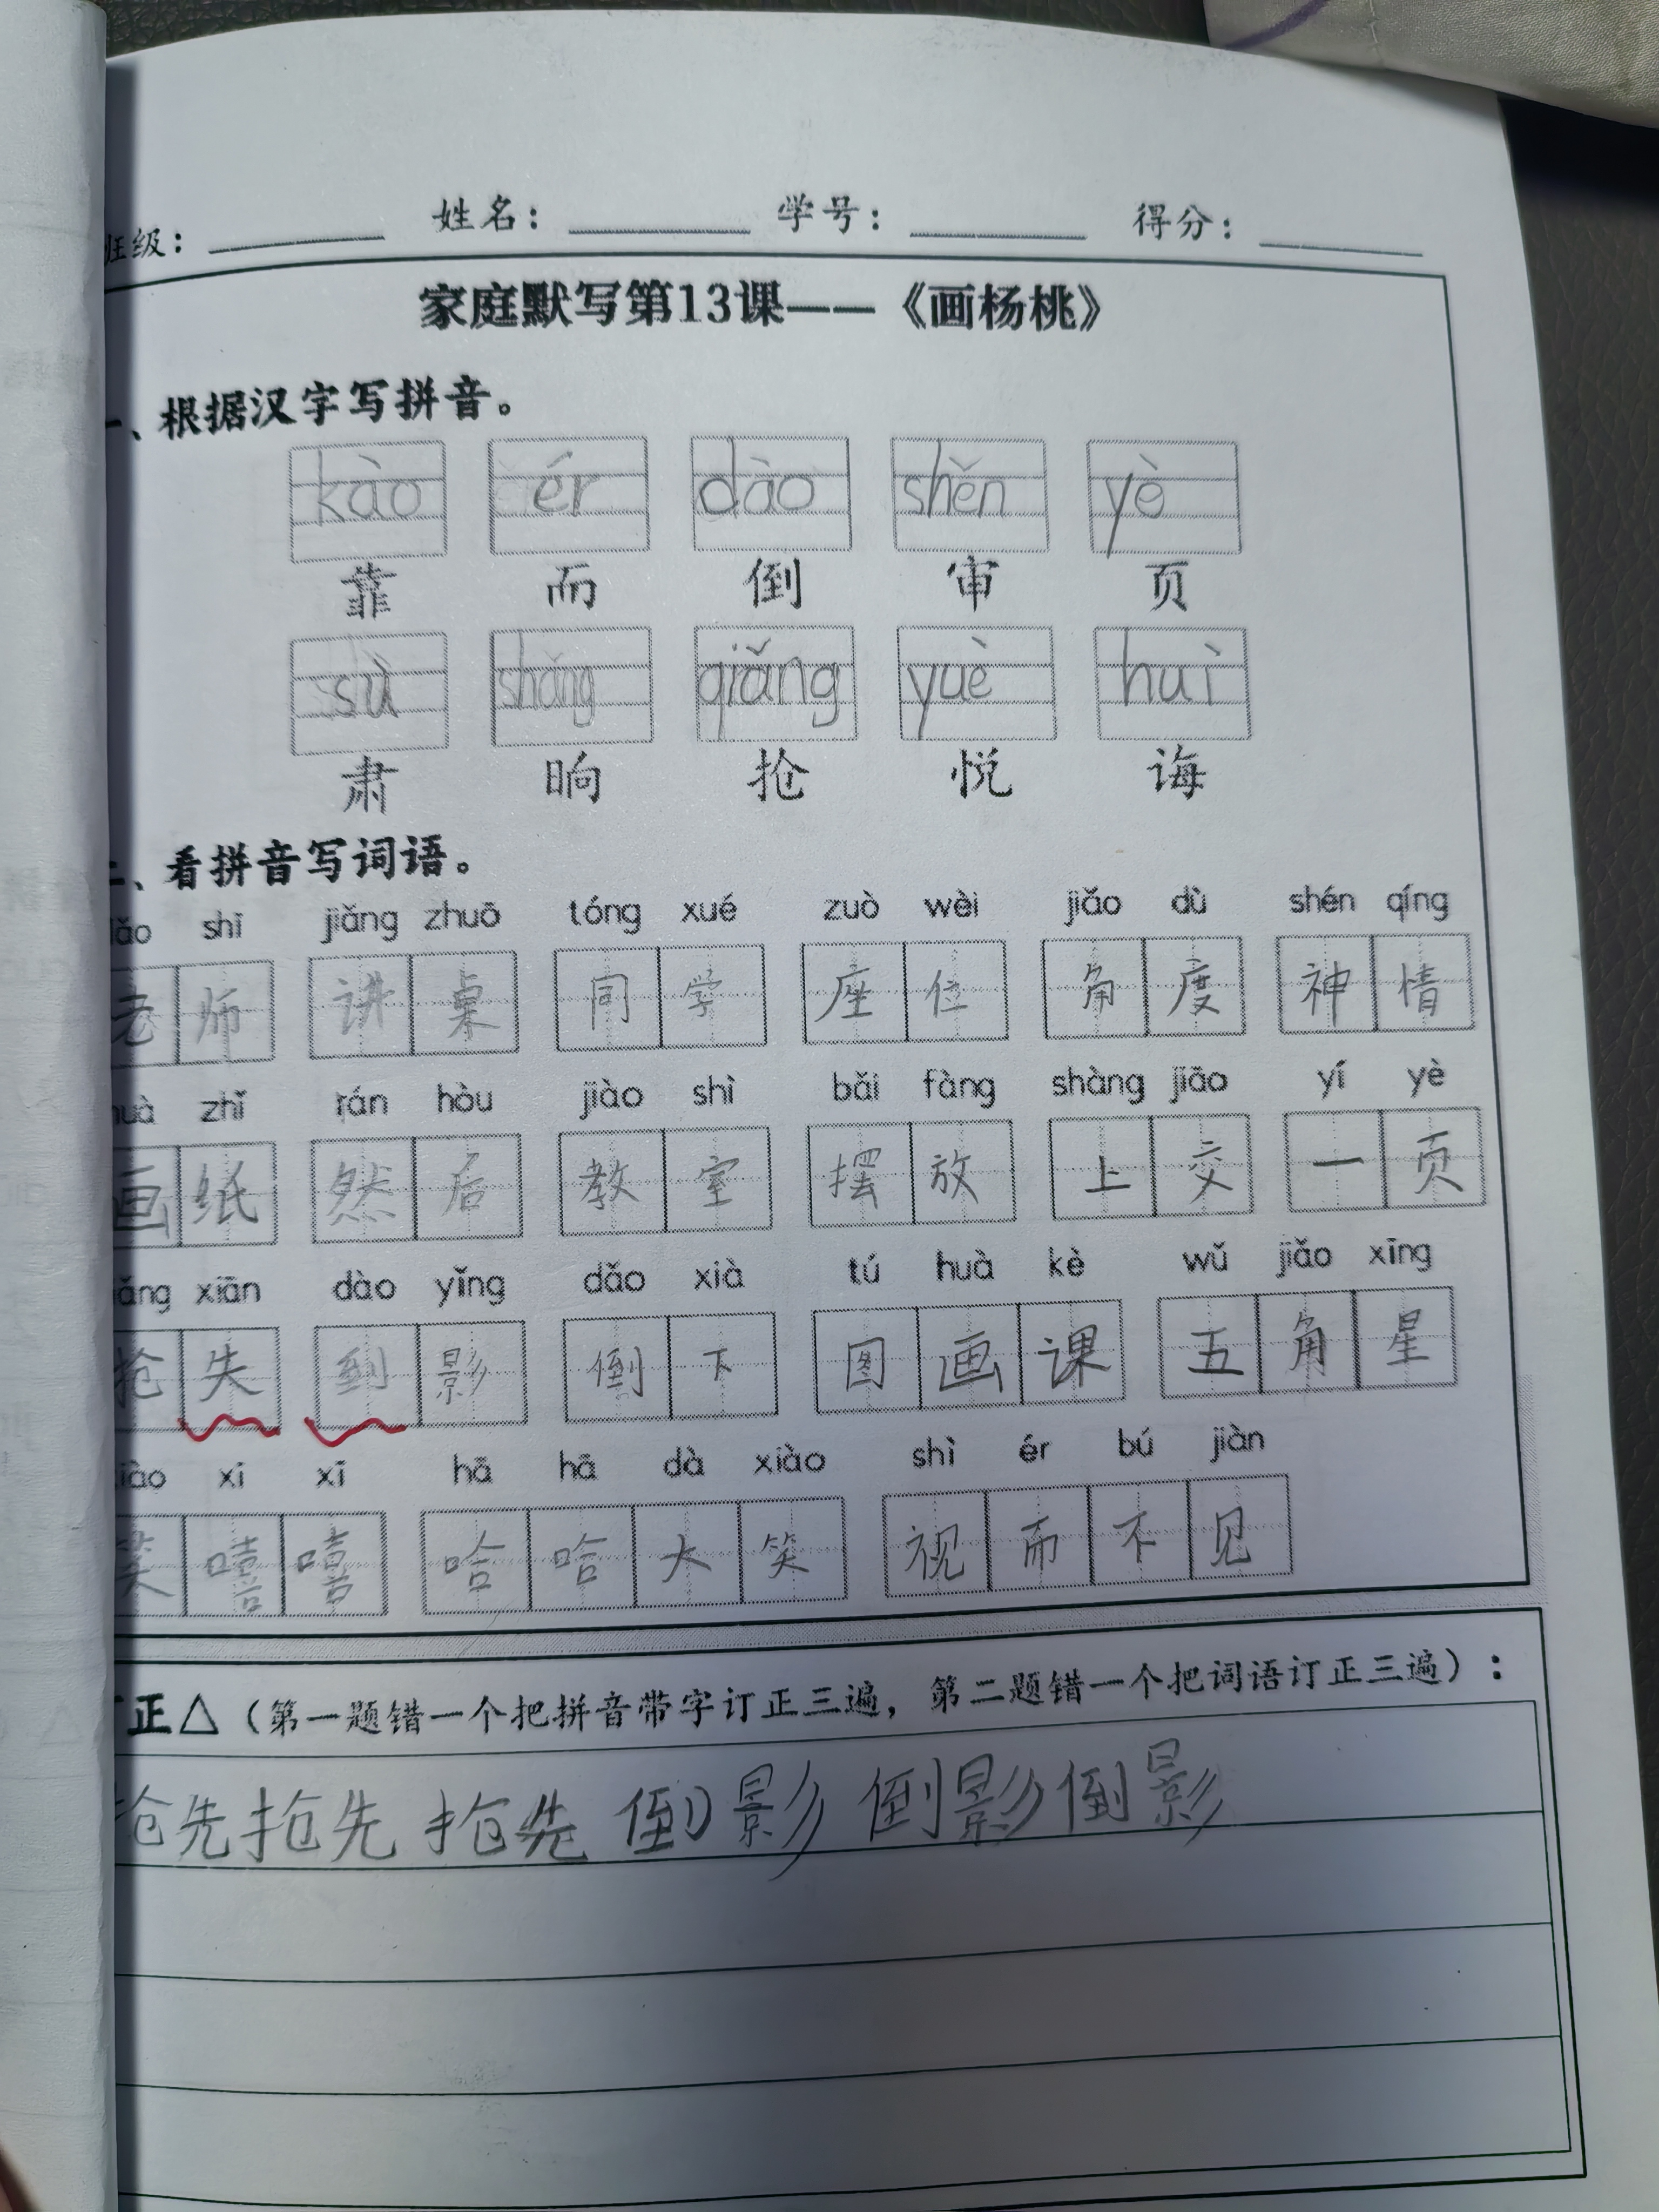 班级： 姓名： 学号： 得分：
家庭默写第13课——《画杨桃》
一、根据汉字写拼音。
kào ér dào shěn yè
靠 而 倒 审 页
sù shǎng qiǎng yuè huì
肃 晌 抢 悦 诲
二、看拼音写词语。
lǎo shī jiǎng zhuō tóng xué zuò wèi jiǎo dù shén qíng
老师 讲桌 同学 座位 角度 神情
huà zhǐ rán hòu jiào shì bǎi fàng shàng jiāo yí yè
画纸 然后 教室 摆放 上交 一页
qiǎng xiān dào yǐng dǎo xià tú huà kè wǔ jiǎo xīng
抢失 到影 倒下 图画课 五角星
xiào xī xī hā hā dà xiào shì ér bú jiàn
笑嘻嘻 哈哈大笑 视而不见
订正△（第一题错一个把拼音带字订正三遍，第二题错一个把词语订正三遍）：
抢先 抢先 抢先 倒影 倒影 倒影